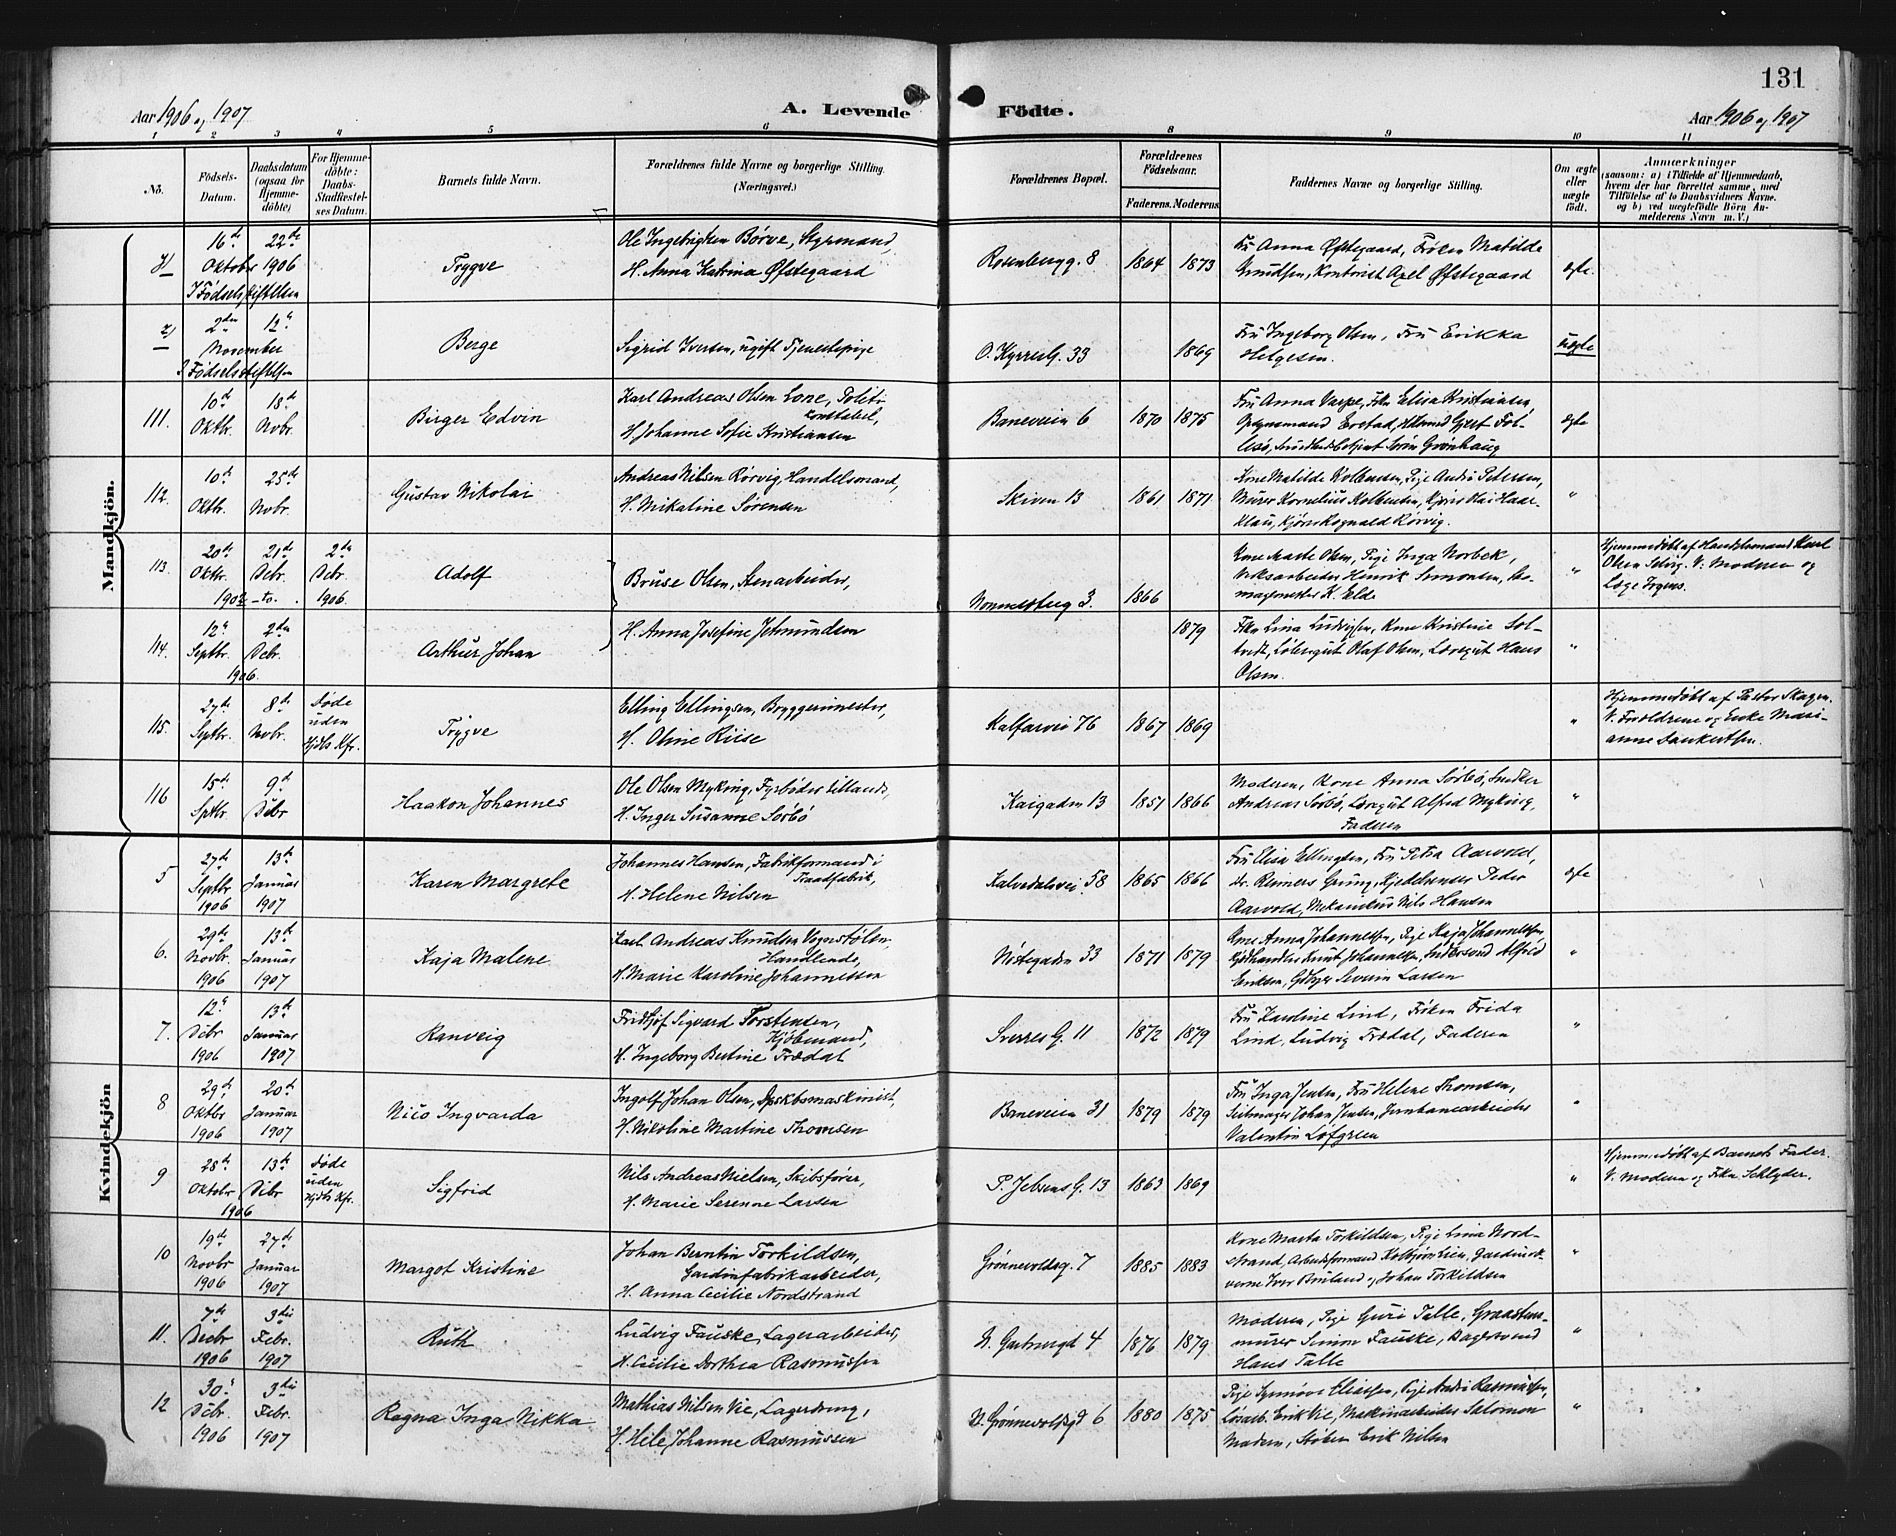 131
Aar 1906 og 1907
A. Levende Födte.
Aar 1906 og 1907
1 2 3 4 5 6 8 9 10 11
No.
Födsels-Datum.
Daabsdatum (ogsaa for Hjemme-döbte)
For Hjemme-döbte: Daabs-Stadfæstel-ses Datum.
Barnets fulde Navn.
Forældrenes fulde Navne og borgerlige Stilling. (Næringsvei.)
Forældrenes Bopæl.
Forældrenes Födselsaar.
Faderens. Moderens.
Faddernes Navne og borgerlige Stilling.
Om ægte eller uægte födt.
Anmærkninger
(saasom: a) i Tilfælde af Hjemmedaab, hvem der har forrettet samme, med Tilföielse af to Daabsvidners Navne. og b) ved uægtefödte Börn An-melderens Navn m. V.)
Mandkjön.
16de Oktober 1906
22de
I Fødselsstiftelsen
Trygve
Ole Ingebrigtsen Børve, Styrmand,
H. Anna Katrina Øfstegaard
Rosenbergg. 8
1864 1873
Fru Anna Øfstegaard, Frøken Matilde
Knudsen, Kontorist Axel Øfstegaard
ægte
2den November
12te
I Fødselsstiftelsen
Berge
Sigrid Iversen, ugift Tjenestepige
O. Kyrresg. 33
1869
Fru Ingeborg Olsen, Fru Erikka
Helgesen.
uægte
111.
10de Oktbr.
18de Novbr.
Birger Edvin
Karl Andreas Olsen Lone, Politi-
konstabel,
H. Johanne Sofie Kristiansen
Baneveien 6
1870 1875
Fru Anna Vaspe, Frk. Elisa Kristiansen,
ægte
112.
10de Oktbr.
25de Novbr.
Gustav Nikolai
Andreas Nilsen Rørvig, Handelsmand,
H. Nikaline Sørensen
Skiven 13
1861 1871
Kone Matilde Kolbensen, Pige Andrea Pedersen,
Murer Kornelius Kolbensen,
"
113.
20de Oktbr.
21de Dcbr.
2den Dcbr. 1906.
Adolf
Bruse Olsen, Stenarbeider,
3.
1866
Kone Marte Olsen, Pige Inga Norbek,
Henrik Simonsen,
K. Elde
"
Hjemmedøbt af Handelsmand Karl
Olsen Selvig. V: Moderen og
114.
12te Septbr.
2den Dcbr.
1906.
Arthur Johan
H. Anna Josefine Jetmundsen
1879
Frk. Lina Ludvigsen, Kone Kristine Sol-
tvedt, Løbergut Olaf Olsen, Læregut Hans
Olsen.
"
115.
27de Septbr.
8de Novbr.
Døde uden Hjdbs Kfr.
Trygve
Elling Ellingsen, Bryggerimester,
H. Oline Riise
Kalfarvei 76
1867 1869
"
Hjemmedøbt af Pastor Skagen.
V. Forældrene og Enke Mari-
anne Dankertsen.
116
15de Sptbr.
9de Dcbr
Haakon Johannes
Ole Olsen Myking, Fyrbøder tillands,
H. Inger Susanne Sørbø
Kaigaden 13
1851 1866
Moderen, Kone Anna Sørbø, Snedker
Andreas Sørbø, Læregut Alfred Myking,
Faderen
"
Kvindekjön
5
27de Septbr 1906
13de Januar 1907
Karen Margrete
Johannes Hansen, Fabrikformand i
Traadfabrik,
H. Helene Nilsen
Kalvedalsvei 58
1865 1866
Fru Elisa Ellingsen, Fru Petra Aarvold,
Hr. Reimers Grung, Kjedelrenser Peder
Aarvold, Mekanikus Nils Hansen
ægte
6.
29de Novbr. 1906
13de Januar 1907
Kaja Malene
Karl Andreas Knudsen Vognstølen,
Handlende,
H. Marie Karoline Johannessen
Nøstegaden 33
1871 1879
Kone Anna Johannessen, Pige Kaja Johannessen,
Kjødhandler Knut Johannessen, Alfred
Eriksen, Severin Larsen
"
7.
12te Dcbr 1906
13de Januar 1907
Ranveig
Fridtjof Sigvard Torstensen,
Kjøbmand,
H. Ingeborg Bertine Trædal
Sverres G. 11
1872 1879
Fru Karoline Lind, Frøken Frida
Lind, Ludvig Trædal, Faderen
"
8
29de Oktbr 1906
20de Januar 1907
Nico Ingvarda
Ingolf Johan Olsen, Dpskbsmaskinist,
H. Nikoline Martine Thomsen
Baneveien 31
1879 1879
Fru Inga Jensen, Fru Helene Thomsen,
Seilmager Johan Jensen, Jernbanearbeider
Valentin Løfgreen
"
9
28de Oktobr
13de Dcbr
1906
Døde uden Hjdbs Kfr.
Sigfrid
Nils Andreas Nielsen, Skibsfører,
H. Marie Serenne Larsen
P. Jebsens G. 13
1863 1869
"
Hjemmedøbt af Barnets Fader.
V. Moderen og Frkn Schlyder.
10
19de Novbr 1906
27de Januar 1907
Margot Kristine
Johan Berntin Torkildsen,
Gardinfabrikarbeider,
H. Anna Cecilie Nordstrand
Grønnevoldsg. 7
1885 1883
Kone Marta Torkildsen, Pige Lina Nord-
strand, Arbeidsformand Kolbjørn Lien,
Iver Bruland og Johan Torkildsen
"
11.
7de Decbr 1906
3die Febr. 1907
Ruth
Ludvig Fauske, Lagerarbeider,
H. Cecilie Dorthea Rasmussen
4
1876 1879
Moderen, Pige Guri Talle, Graastens-
murer Simon Fauske, Bagersvend
Hans Talle
"
12
30te Dcbr. 1906
3die Febr. 1907
Ragna Inga Nikka
Mathias Nilsen Vie, Lagerdreng,
H. Hele Johanne Rasmussen
N. Grønnevoldsgd 6
1880 1875
Pige Synnøve Eliassen, Pige Andrea Rasmussen,
Erik Vie, Maskinarbeider Salomon
Madsen, Støber Erik Nilsen
"